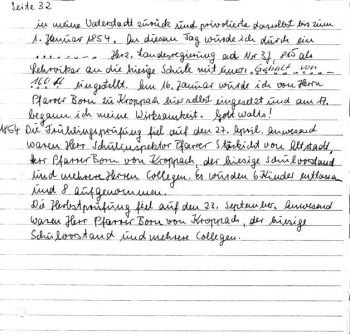 Seite 32
in meine Vaterstadt zurück und privatierte daselbst bis zum
1. Januar 1854. An diesem Tag würde ich durch ein
. . . . . . . . Herz. Landesregierung ad Nr 37, als
Lehrvikar an die hiesige Schule mit einem Gehalt von
160 fl eingestellt. Am 16. Januar würde ich von Herrn
Pfarrer Born zu Kroppach hierselbst eingesetzt und am 17.
begann ich meine Wirksamkeit. Gott walts!
1854 Die Frühlingsprüfung fiel auf den 27. April. Anwesend
waren Herr Schulinspektor Pfarrer von Altstadt,
Herr Pfarrer Born von Kroppach, der hiesige Schulvorstand
und mehrere Herren Collegen. Es würden 6 Kinder entlassen
und 8 aufgenommen.
Die Herbstprüfung fiel auf den 23. September. Anwesend
waren Herr Pfarrer Born von Kroppach, der hiesige
Schulvorstand und mehrere Collegen.